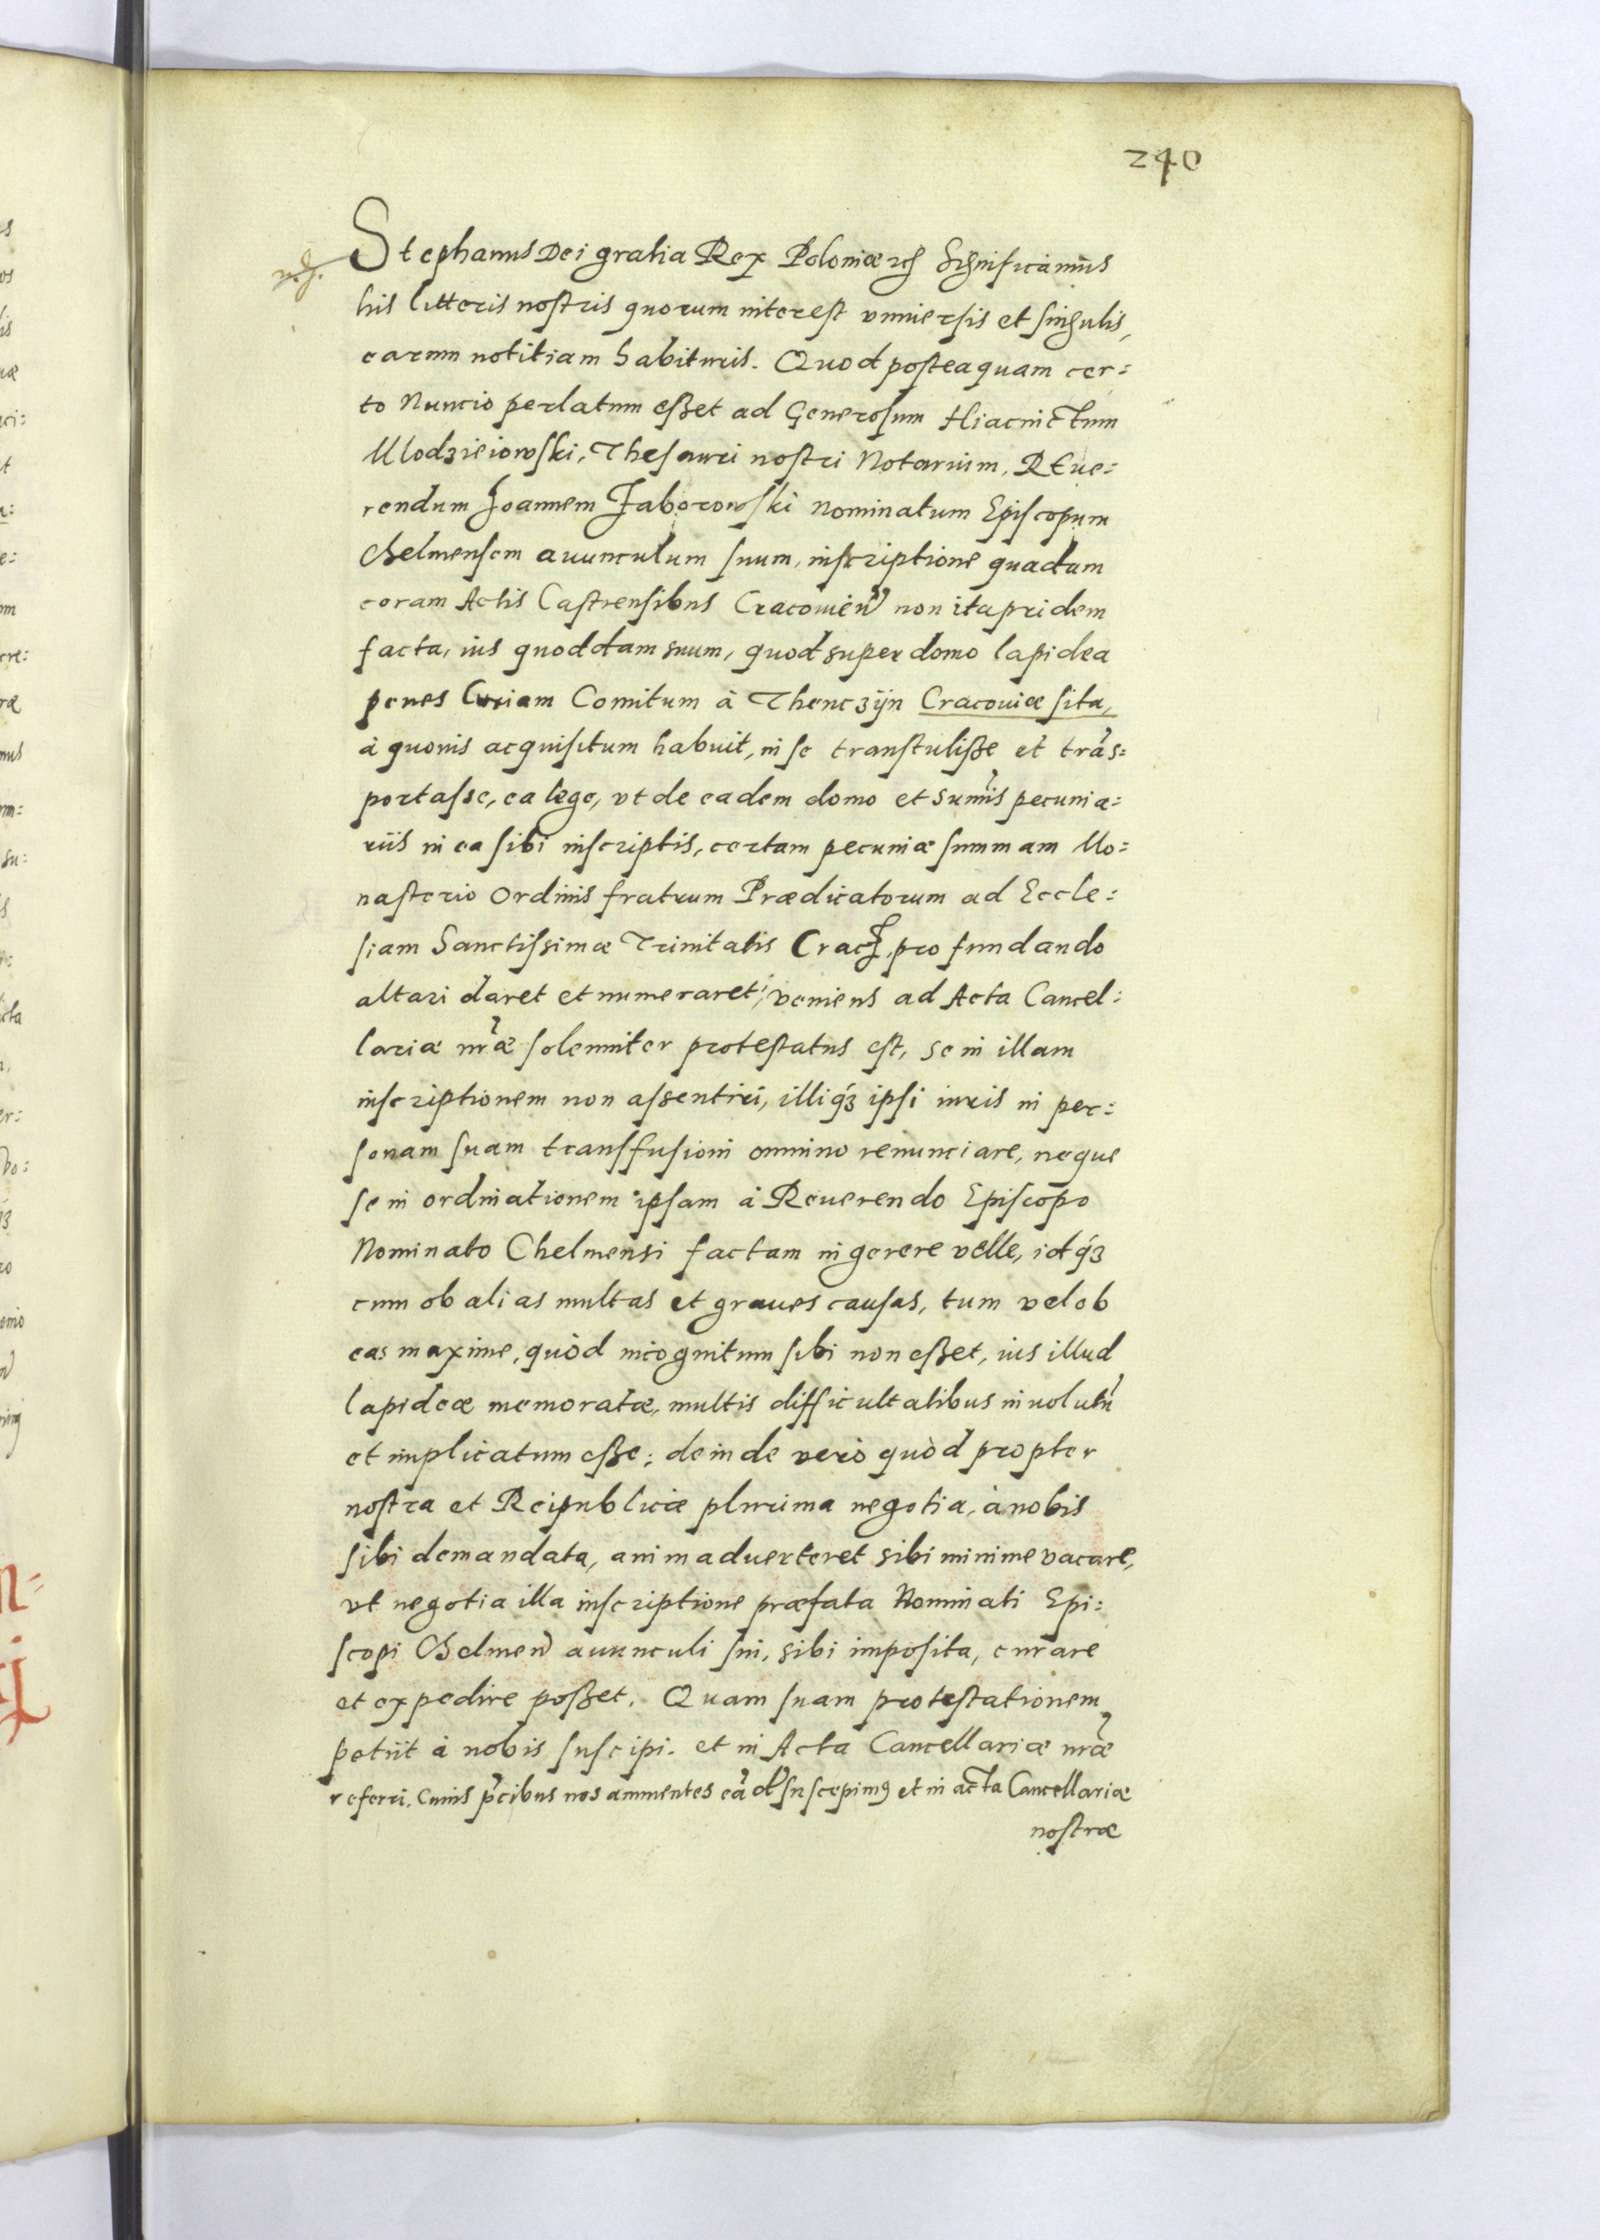 240
Stephanus Dei gratia Rex Poloniæ etc̃ Significamus
his litteris nostris quorum interest vniuersis et singulis,
earum notitiam habituris. Quod posteaquam cer:
to Nuncio perlatum esset ad Generosum Hiacinctum
Mlodzieiowski, Thesauri nostri Notarium, Reue:
rendum Joannem Zaborowski nominatum Episcopum
Chelmensem auunculum suum, inscriptione quadam
coram Actis Castrensibus Cracouieñ non ita pridem
facta, ius quoddam suum, quod super domo lapidea
penes Curiam Comitum à Thenczijn Cracouiæ sita,
à quouis acquisitum habuit, in se transtulisse et trãs:
portasse, ea lege, vt de eadem domo et sum̃is pecunia:
riis in ea sibi inscriptis, certam pecuniæ summam Mo:
nasterio Ordinis fratrum Prædicatorum ad Eccle:
siam Sanctissimæ Trinitatis Crac̃, pro fundando
altari daret et numeraret; veniens ad Acta Cancel:
lariæ nr̃æ solenniter protestatus est, se in illam
inscriptionem non assentiri, illiqꝫ ipsi iuris in per:
sonam suam transfusioni omnino renunciare, neque
se in ordinationem ipsam à Reuerendo Episcopo
Nominato Chelmensi factam ingerere velle, idqꝫ
cum ob alias multas et graues causas, tum vel ob
eas maxime, quòd incognitum sibi non esset, ius illud
lapideæ memoratæ, multis difficultatibus inuolutũ
et implicatum esse; deinde verò quòd propter
nostra et Reipublicæ plurima negotia, à nobis
sibi demandata, animaduerteret sibi minime vacare,
vt negotia illa inscriptione præfata Nominati Epi:
scopi Chelmeñ auunculi sui, sibi imposita, curare
et expedire posset. Quam suam protestationem
petiit à nobis suscipi. et in Acta Cancellariæ nr̃æ
referri. Cuius p̃cibus nos annuentes eã suscepimꝰ et in acta Cancellariæ
nostræ